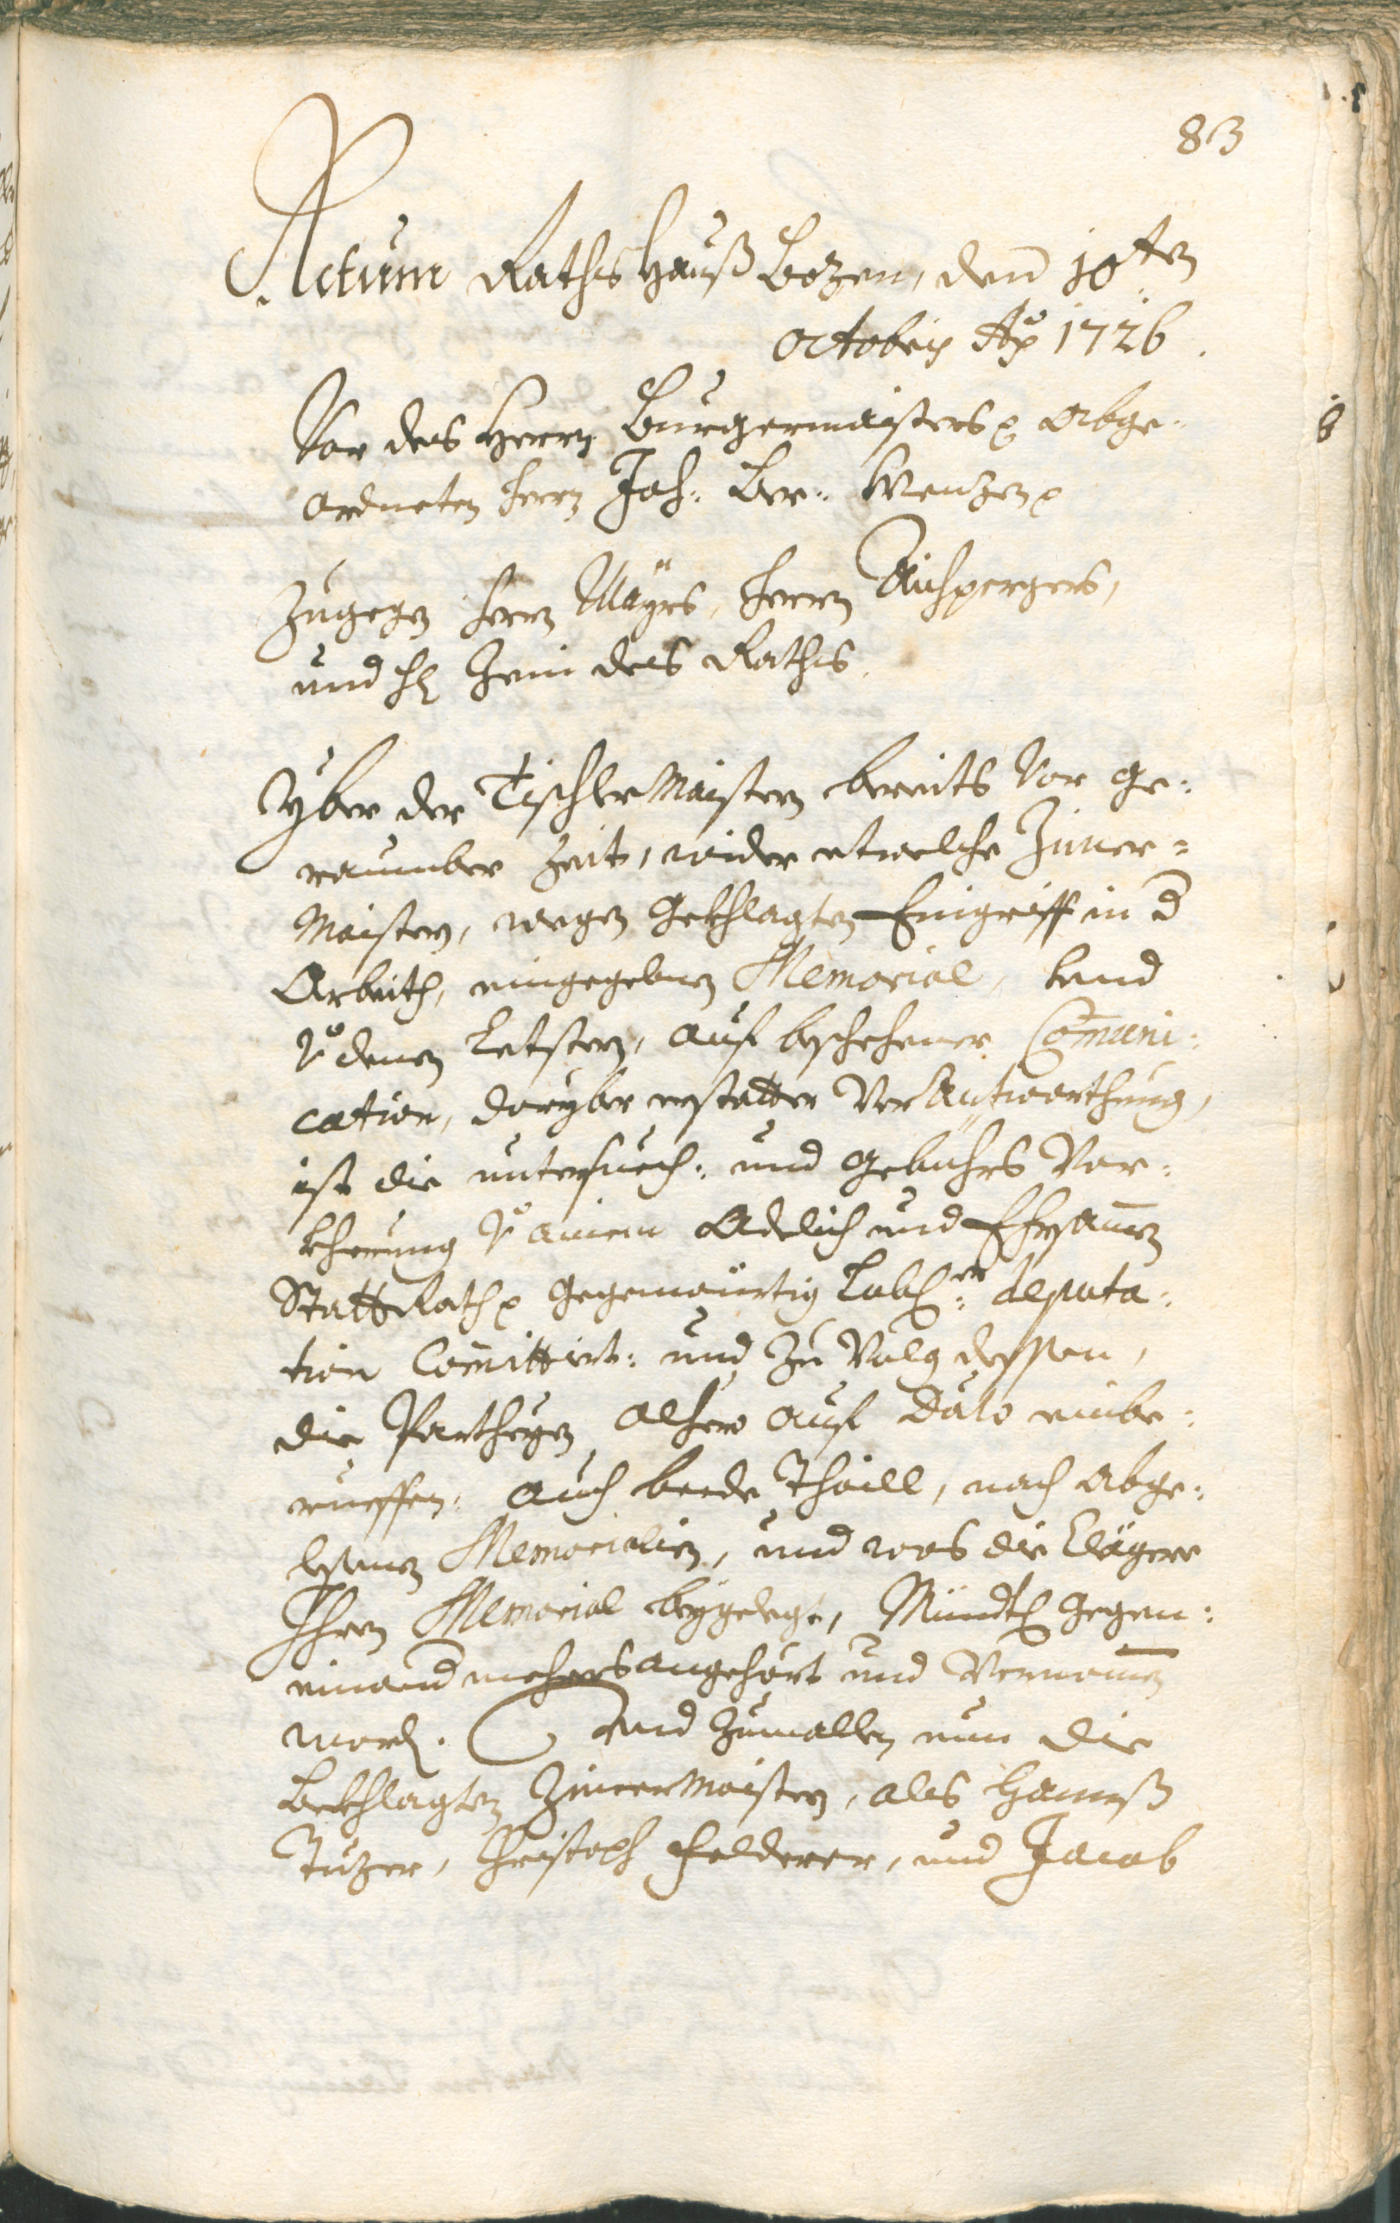 83
Actum Rathshauß Bozen, den 10ten
octobris Ao 1726.
Vor des Herrn Burgermaisters abge¬
ordneten Herrn Joh: Bar: Menzen
Zugegen Herrn Mayrs, Herrn Aichpergers,
und H des Raths.
Yber der Tischler Maistern bereits Vor ge¬
raumber Zeit, wider etwelche Zimer=
Maistern, wegen gekhlagten Eingriff in d
Arbeith, eingegebnen Memorial, und
Vo denen Letstern, auf beschehener Comuni:
cation, daryber erstatter Verantworthung,
ist die untersuech: und gebührs Vor¬
kherung Vo ainem Adelich und Ehrsamen
StattRath gegenwürtig Lobler deputa:
tion Comittirt: und Zu Volg dessen,
die Partheyen alhero auf Dato einbe:
rueffen: auch beede Thaill, nach abge:
lesenen Memorialien, und was die Clägere
Ihren Memorial beygelegt, Mündtl gegen:
einand mehrers angehört und Vernomen
word. Und Zumallen nun die
bekhlagten ZimerMaistern, als Hannß
Tuzer, Christoph Felderer, und Jacob